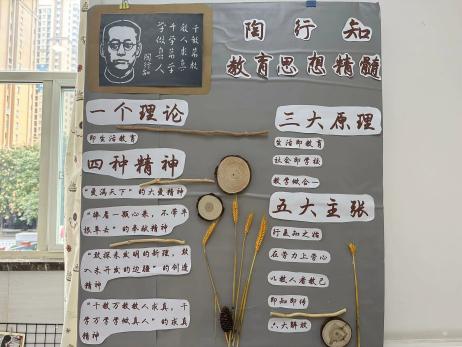 千教万教
教人求真
千学万学
学做真人
陶行知
陶行知
教育思想精髓
一个理论
即生活教育
四种精神
“爱满天下”的大爱精神
“捧着一颗心来，不带半
根草去”的奉献精神
“敢探未发明的新理，敢
入未开发的边疆”的创造
精神
“千教万教教人求真，千
学万学学做真人”的求真
精神
三大原理
即生活即教育
社会即学校
教学做合一
五大主张
行是知之始
在劳力上劳心
以教人者教己
即知即传
六大解放